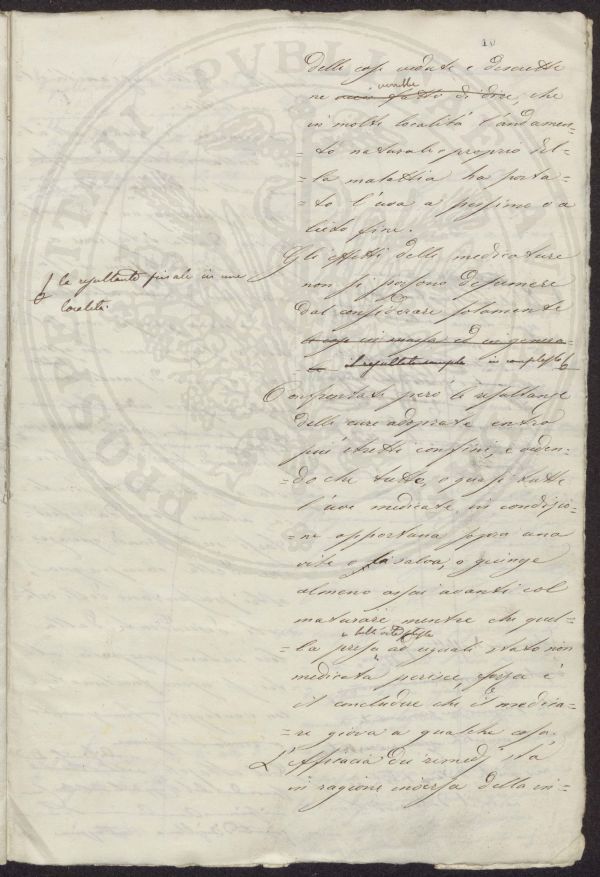 10
delle cose vedute e descritte
ne verrebbe fatto di dire, che
in molte località l'andamen=
=to naturale e proprio del=
=la malattia ha porta=
=to l'uva a pessimo o a
lieto fine.
Gli effetti delle medicature
non si possono desumere
dal considerare solamente
le resultante finali in una
località.
in complesso
Confrontate però le resultanze
delle cure adoprate entro
più stretti confini, e veden=
=do che tutte, o quasi tutte
l'uve medicate in condizio=
=ne opportuna sopra una
vite o si salva, o giunge
almeno assai avanti col
maturare mentre che quel=
=la presa ad uguali stato non
medicata perisce, forza è
il concludere che il medica=
=re giova a qualche cosa.
L'efficacia dei rimedj stà
in ragione inversa della in=
PROSPERITATI PVBLICAE